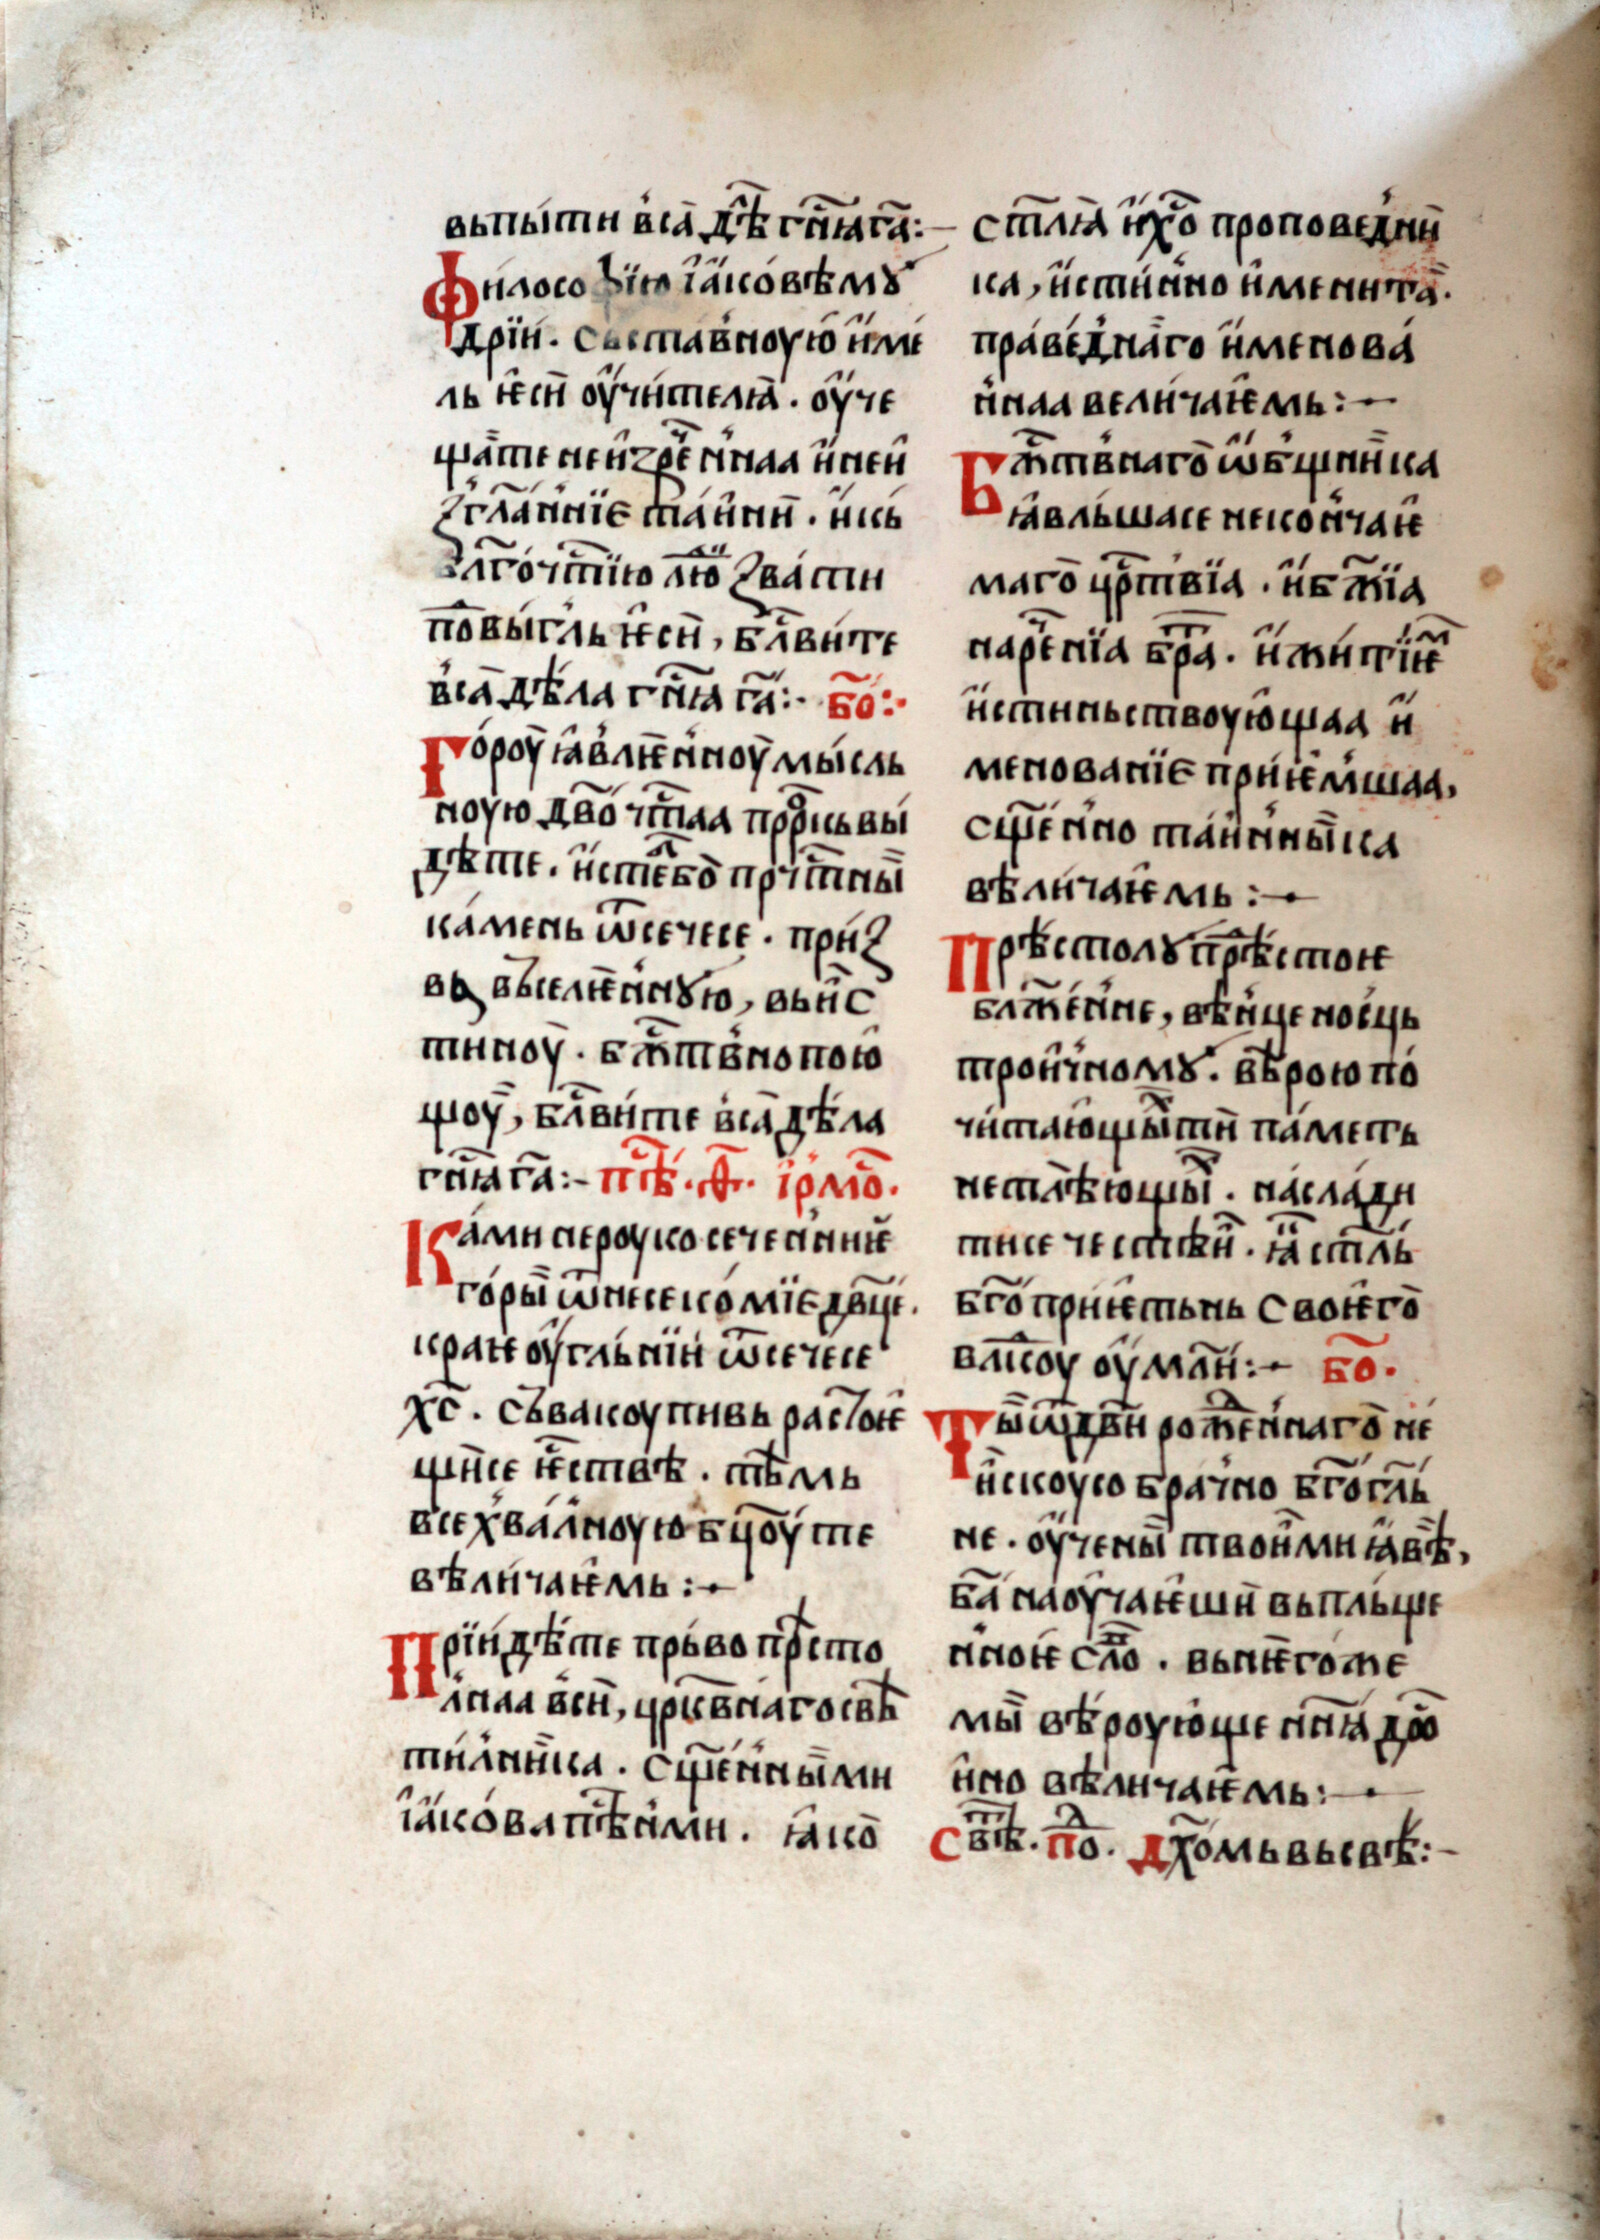 вьпы́ти в̾са̑ дѣ̑ гн҃ꙗ га҃:–
Фи́лосо фїю і҆а҆ко́вѣ мꙋ
дрїи́. съставноую̀ и҆мѣ
ль ѥ҆си̏ оу҆чи́телꙗ. оу҆че
ща̏те неи҆зрⷱ҇еннаа и҆неи҆
ꙁгл҃а́н̾нїе та́ини̏. и҆кь
бл҃го́чт҃їю лю҃ ꙁва́сти
по̏вы́гль ѥ҆си̏, бл҃ви́те
в̾са̏ дѣ́ла гн҃ꙗ га҃:· бо҃:·
Го́роу ꙗ҆в̾лѥ́нноу мы́сль
ноую дв҃о чт҃аа прⷪ҇ркь вы́
дѣте. и҆стебо̏ прчⷭ҇тны̏
ка́мень ѿсе́чесе. при́ꙁ
вь вьселѥ́ннꙋю, вьи́с
тиноу̏. бжⷭ҇тв̾но пою̑
щоу̏, бл҃ви́те в̾са̏ дѣ́ла
гн҃ꙗ га҃:– пѣⷭ҇. ѳ҃. і҆рмо҃.
Ка́ми не роуко сече́нниѥ
го́ры̏ ѿнесеко́мїе дв҃це.
краѥ оу҆гль́нїи ѿсе́чесе
хс҃. съвакоупивь растоѥ
щи̏се ѥ҆ства̀. тѣмь
всехва́л̾ноую бц҃оу те
вѣли́чаѥмь:–
Прїи́дѣте пръво прѣсто
л̾наа в̾си̏, црк҃в̾на́го свѣ
тил̾ни́ка. сщ҃е́нны̏ми
і҆а҆ко́ва пѣ́с̾нми. ꙗ҆ко̏
ст҃лꙗ и҆хо҃ проповѣ́дни̏
ка, и҆сти́н̾но и҆мени́та̏.
пра́ве́дна̏го и҆менова́
н̾наа вели́чаѥмь:–
Бжⷭ҇тв̾наго̏ ѡ҆бщни̏ка
ꙗ҆вль́шасе не кон̾чаѥ
маго̏ црⷭ҇твїа. и҆бж҃їа
наре́нїа бра҃. и҆жи́тїѥмⷨ
и҆стинь́ствоую̑щаа и҆
менова́нїе приѥ́м̾шаа,
сщ҃е́н̾но та́инны̏ка
вѣли́чаѥмь:–
Прѣстолꙋ прѣ́стоѥ
блж҃е́нне, вѣ́нценосць
трои́чномꙋ. вѣрою по́
чи́таю̑щы̏ ти̏ па́меть
не тлѣю̑щы̏. насла́ди
тисе че́стнѣи̏. ꙗ҆ ст҃ль
бг҃о прі́ѥтьнь своѥго̏
вл҃коу оу҆мл҃и:– бо҃.
Ты̏ ѿдв҃и рожⷣе́ннаго̏ не
и҆скоусо бра́чно бг҃огль
не. оу҆чены̏ твои̏ми ꙗ҆вѣ,
ба҃ наоу҆чаѥши̏ вьпль́ще
н̾ноѥ сло҃. вьнѥ́гоже
мы̏ вѣ́роую̑ще нн҃ꙗ до҃
и҆но вѣ́личаѥмь:–
Свѣⷮ. поⷣ. Дх҃омь вьсвѣ:–